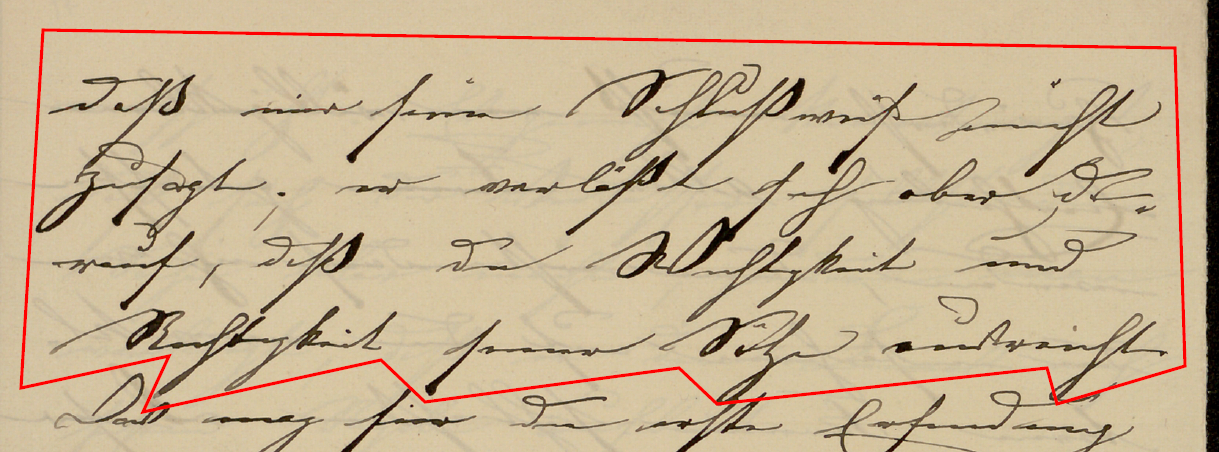 daß mir seine Schlußweise nicht
zusagt; er verläßt sich aber da-
rauf, daß die Wichtigkeit und
Richtigkeit seiner Sätze ausreichte
Das mag für die erste Erfindung